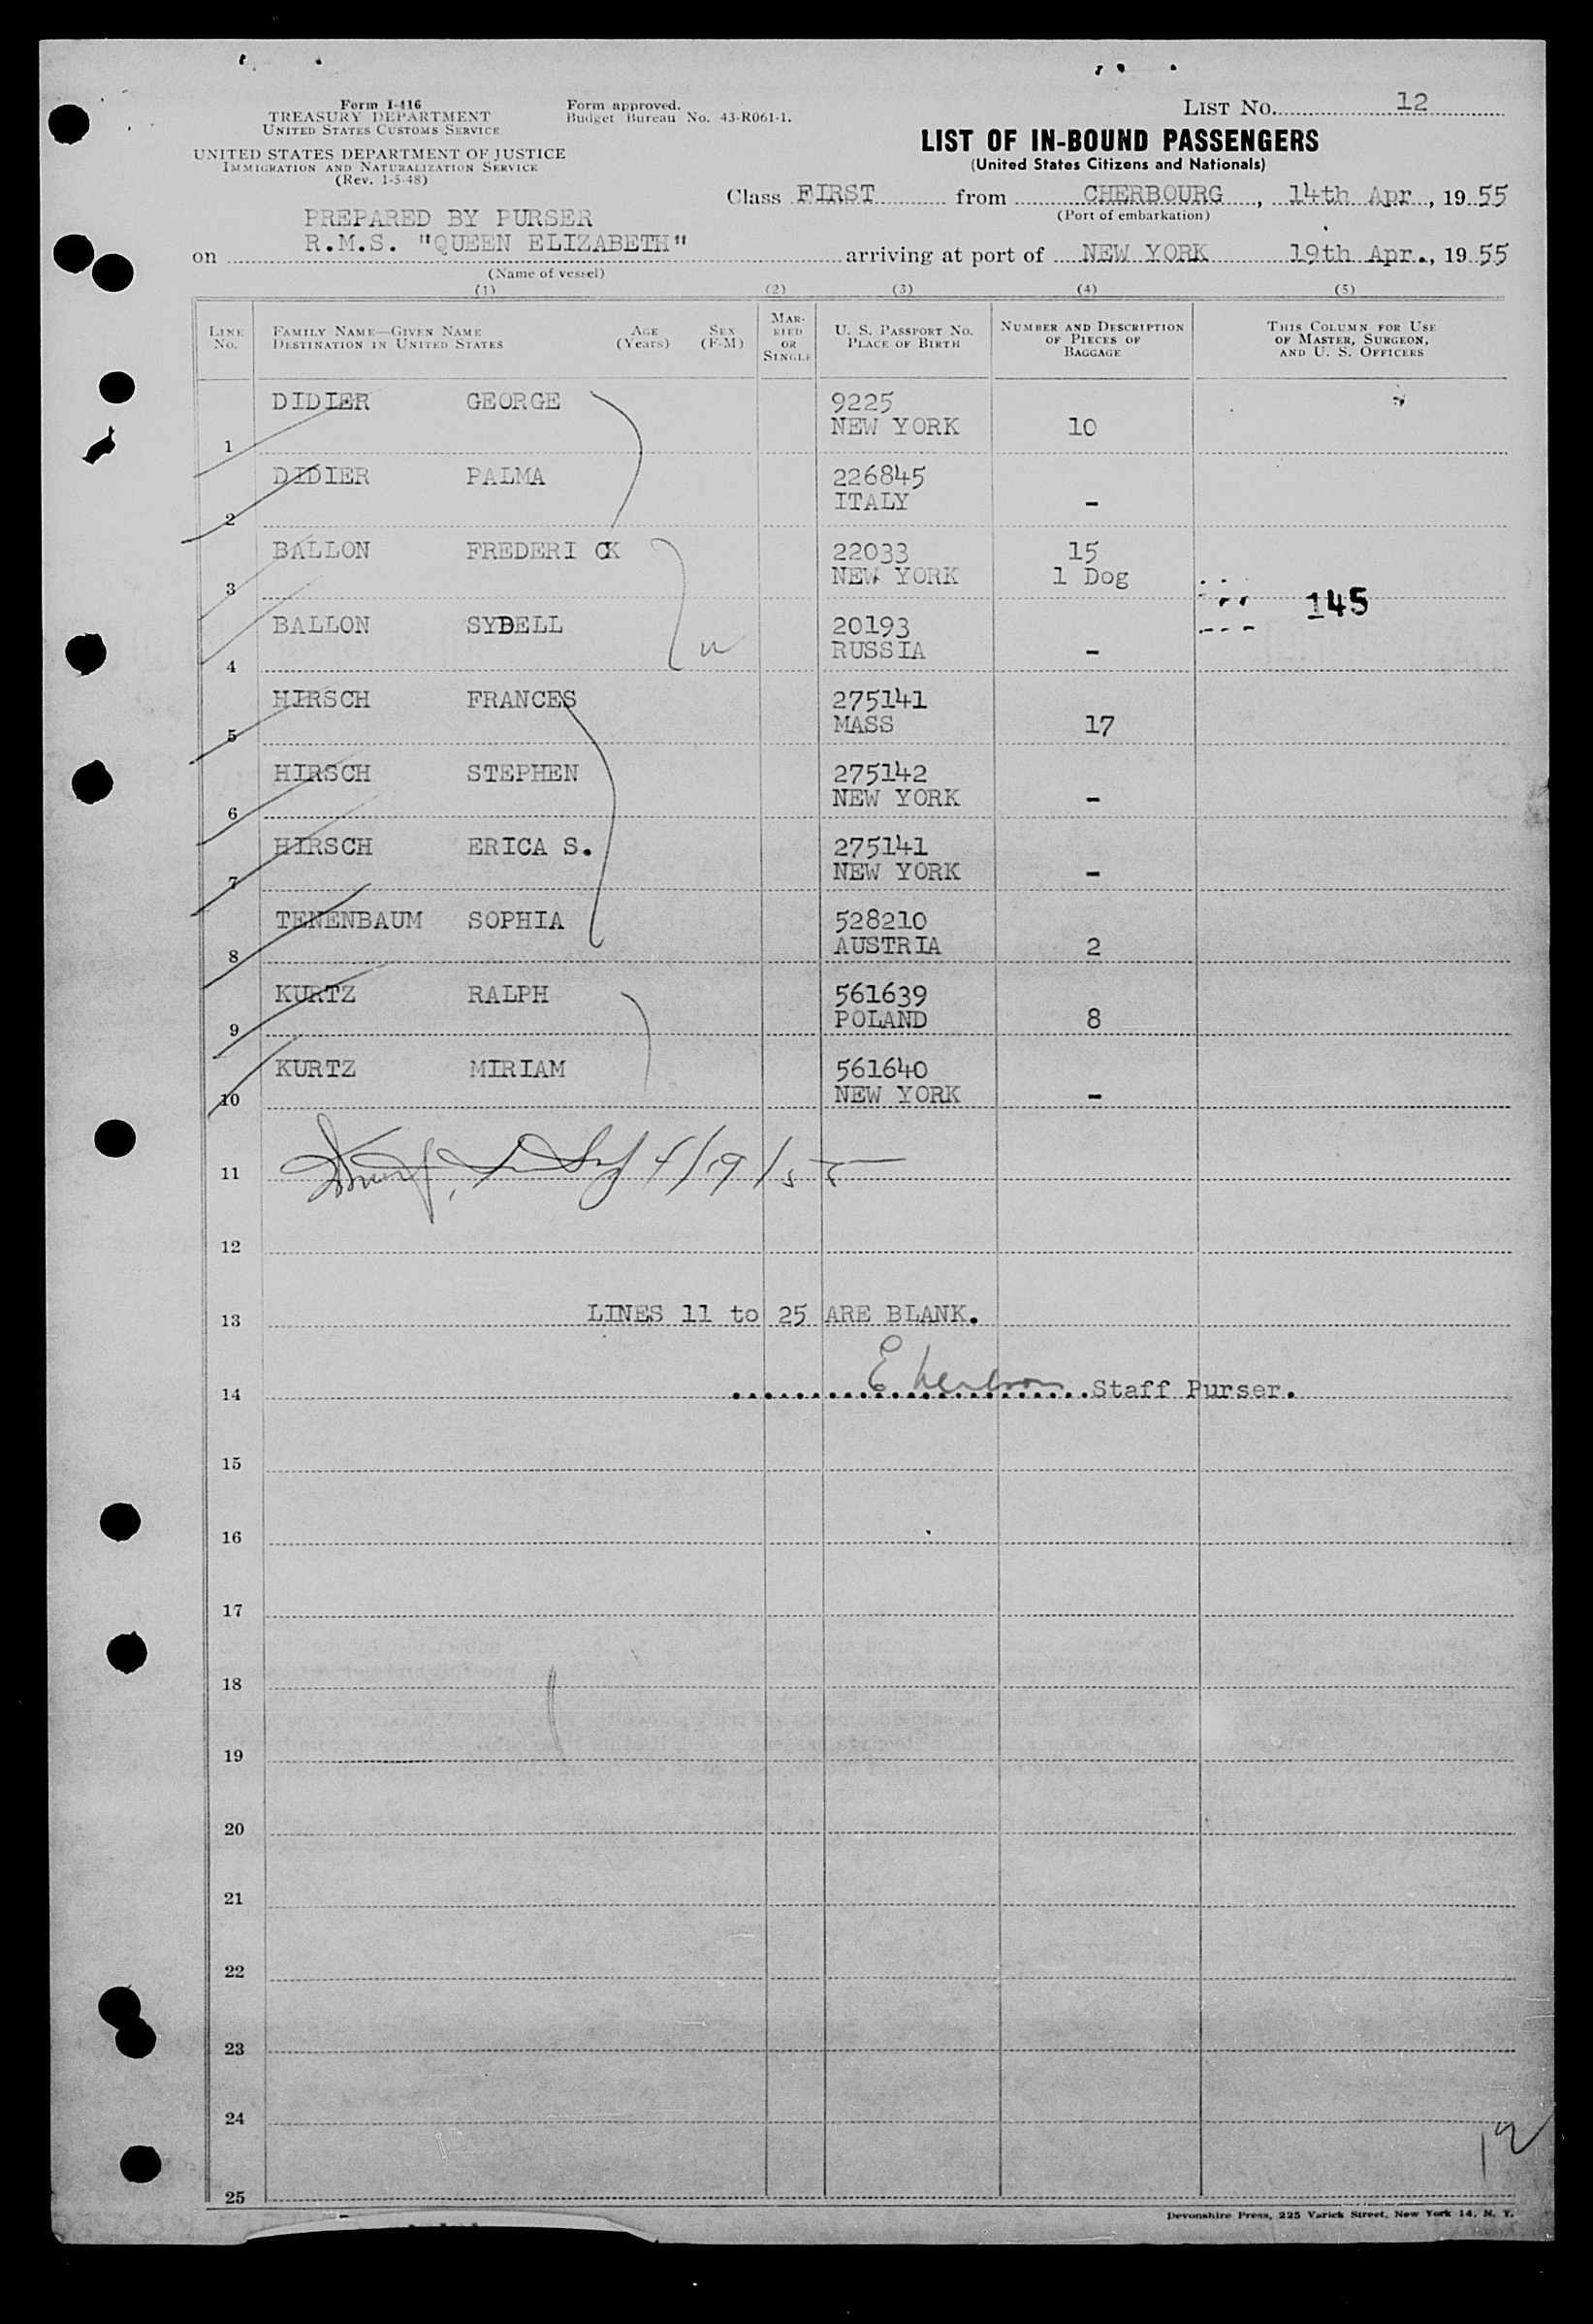 Form I-416
TREASURY DEPARTMENT
UNITED STATES CUSTOMS SERVICE
Form approved.
Budget Bureau No. 43-R061-1.
LIST NO. 12
LIST OF IN-BOUND PASSENGERS
(United States Citizens and Nationals)
UNITED STATES DEPARTMENT OF JUSTICE
IMMIGRATION AND NATURALIZATION SERVICE
(Rev. 1-5-48)
Class FIRST from CHERBOURG, 14th Apr, 1955
(Port of embarkation)
PREPARED BY PURSER
on R.M.S. "QUEEN ELIZABETH" arriving at port of NEW YORK 19th Apr., 1955
(Name of vessel)
(1) (2) (3) (4) (5)
LINE NO. FAMILY NAME—GIVEN NAME DESTINATION IN UNITED STATES AGE (Years) SEX (F-M) MARRIED OR SINGLE U. S. PASSPORT NO. PLACE OF BIRTH NUMBER AND DESCRIPTION OF PIECES OF BAGGAGE THIS COLUMN FOR USE OF MASTER, SURGEON, AND U. S. OFFICERS
DIDIER GEORGE 9225
1 NEW YORK 10
DIDIER PALMA 226845
2 ITALY -
BALLON FREDERICK 22033 15
3 NEW YORK 1 Dog
145
BALLON SYDELL 20193
4 RUSSIA -
HIRSCH FRANCES 275141
5 MASS 17
HIRSCH STEPHEN 275142
6 NEW YORK -
HIRSCH ERICA S. 275141
7 NEW YORK -
TENENBAUM SOPHIA 528210
8 AUSTRIA 2
KURTZ RALPH 561639
9 POLAND 8
KURTZ MIRIAM 561640
10 NEW YORK -
11 4/19/55
12
13 LINES 11 to 25 ARE BLANK.
14 Staff Purser.
15
16
17
18
19
20
21
22
23
24
12
25
Devonshire Press, 225 Varick Street, New York 14, N. Y.